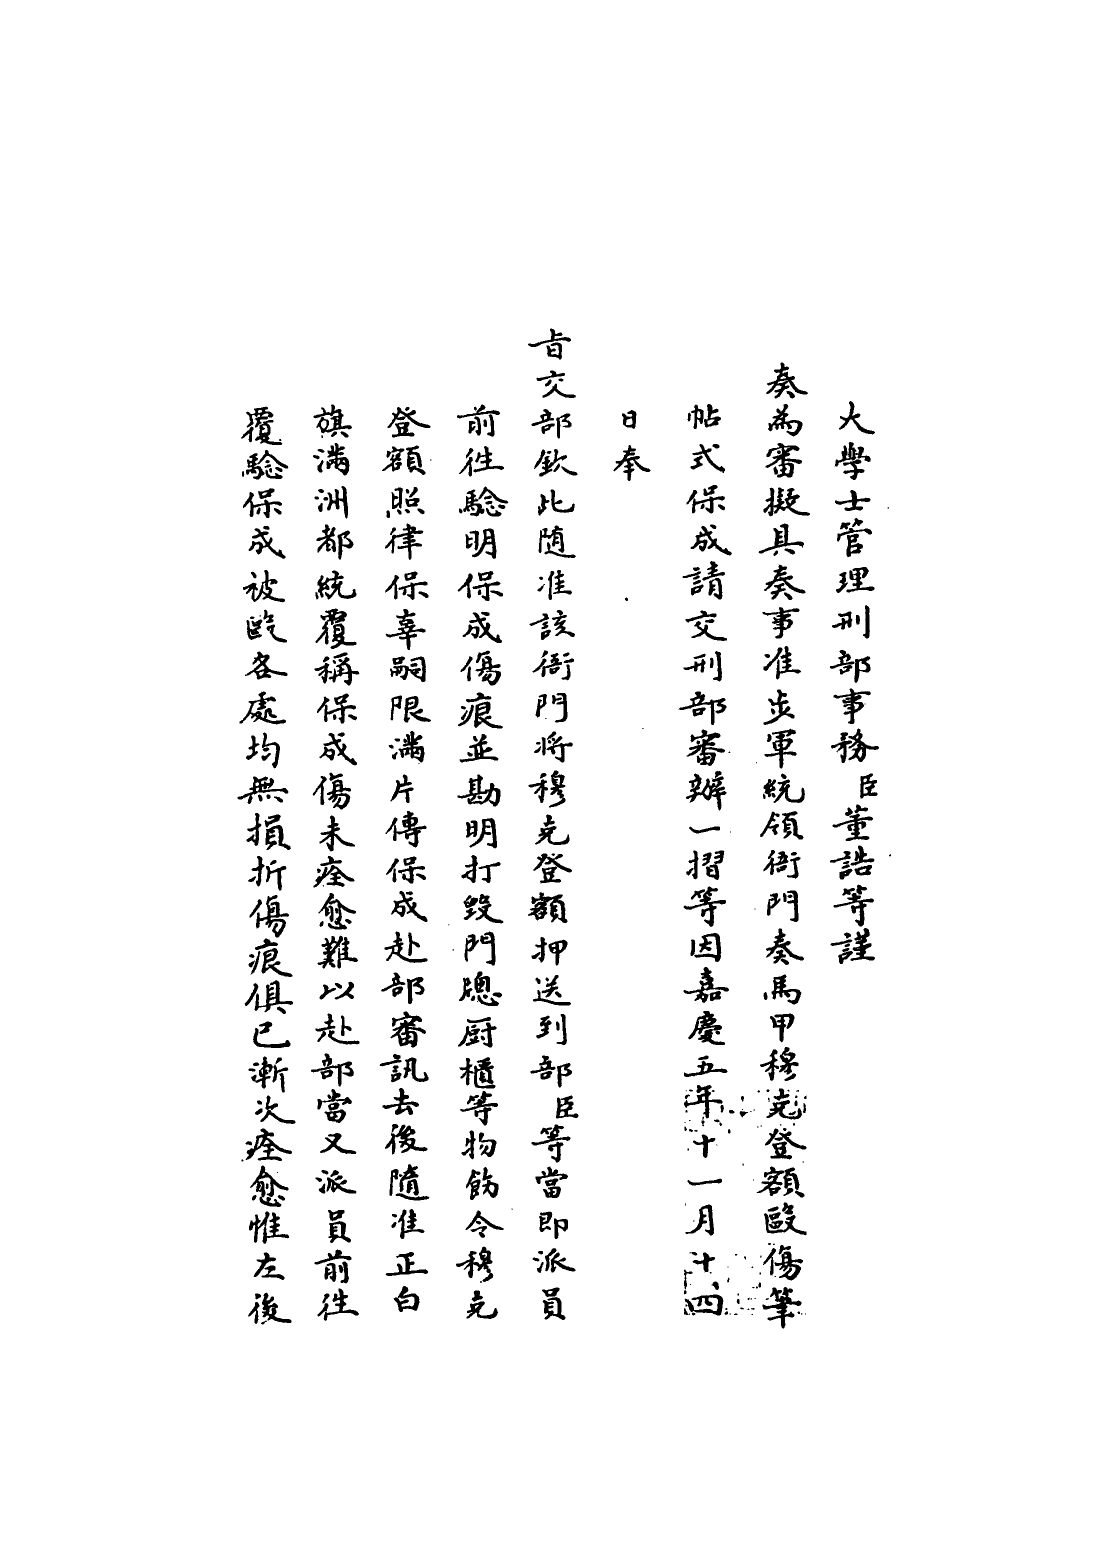 大學士管理刑部事務臣董誥等謹
奏為審擬具奏事准步軍統領衙門奏馬甲穆克登額毆傷筆
帖式保成請交刑部審辦一摺等因嘉慶五年十一月十四
日奉
旨交部欽此随准該衙門将穆克登額押送到部臣等當即派員
前徃騐明保成傷痕並勘明打毀門牕厨櫃等物飭令穆克
登額照律保辜嗣限滿片傳保成赴部審訊去後隨准正白
旗滿洲都統覆稱保成傷未痊愈難以赴部當又派員前徃
覆騐保成被毆各處均無損折傷痕俱已漸次痊愈惟左後